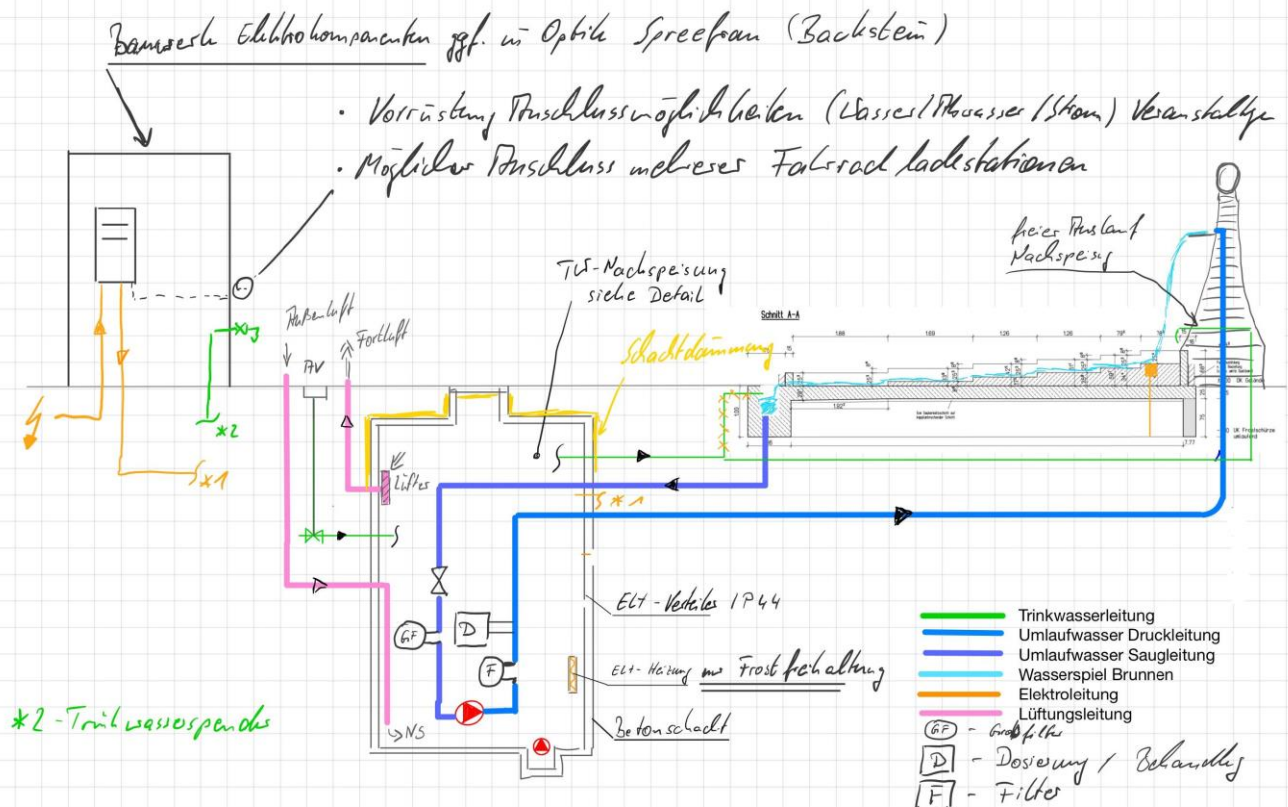 Bauwerk Elektrokomponenten ggf. in Optik Spreefrau (Backstein)
· Vorrüstung Anschlussmöglichkeiten (Wasser/Abwasser/Strom)
· Möglicher Anschluss mehrerer Fahrradladestationen
freier Auslauf
Nachspeisg
TW-Nachspeisung
siehe Detail
Schachtdämmung
Außenluft
Fortluft
AV
Lüfter
Schnitt A-A
*2
*1
*1
GF
D
F
ELT-Verteiler IP44
ELT-Heizung nur Frostfreihaltung
Betonschacht
NS
*2 - Trinkwasserspender
Trinkwasserleitung
Umlaufwasser Druckleitung
Umlaufwasser Saugleitung
Wasserspiel Brunnen
Elektroleitung
Lüftungsleitung
GF - Grobfilter
D - Dosierung / Behandlg
F - Filter